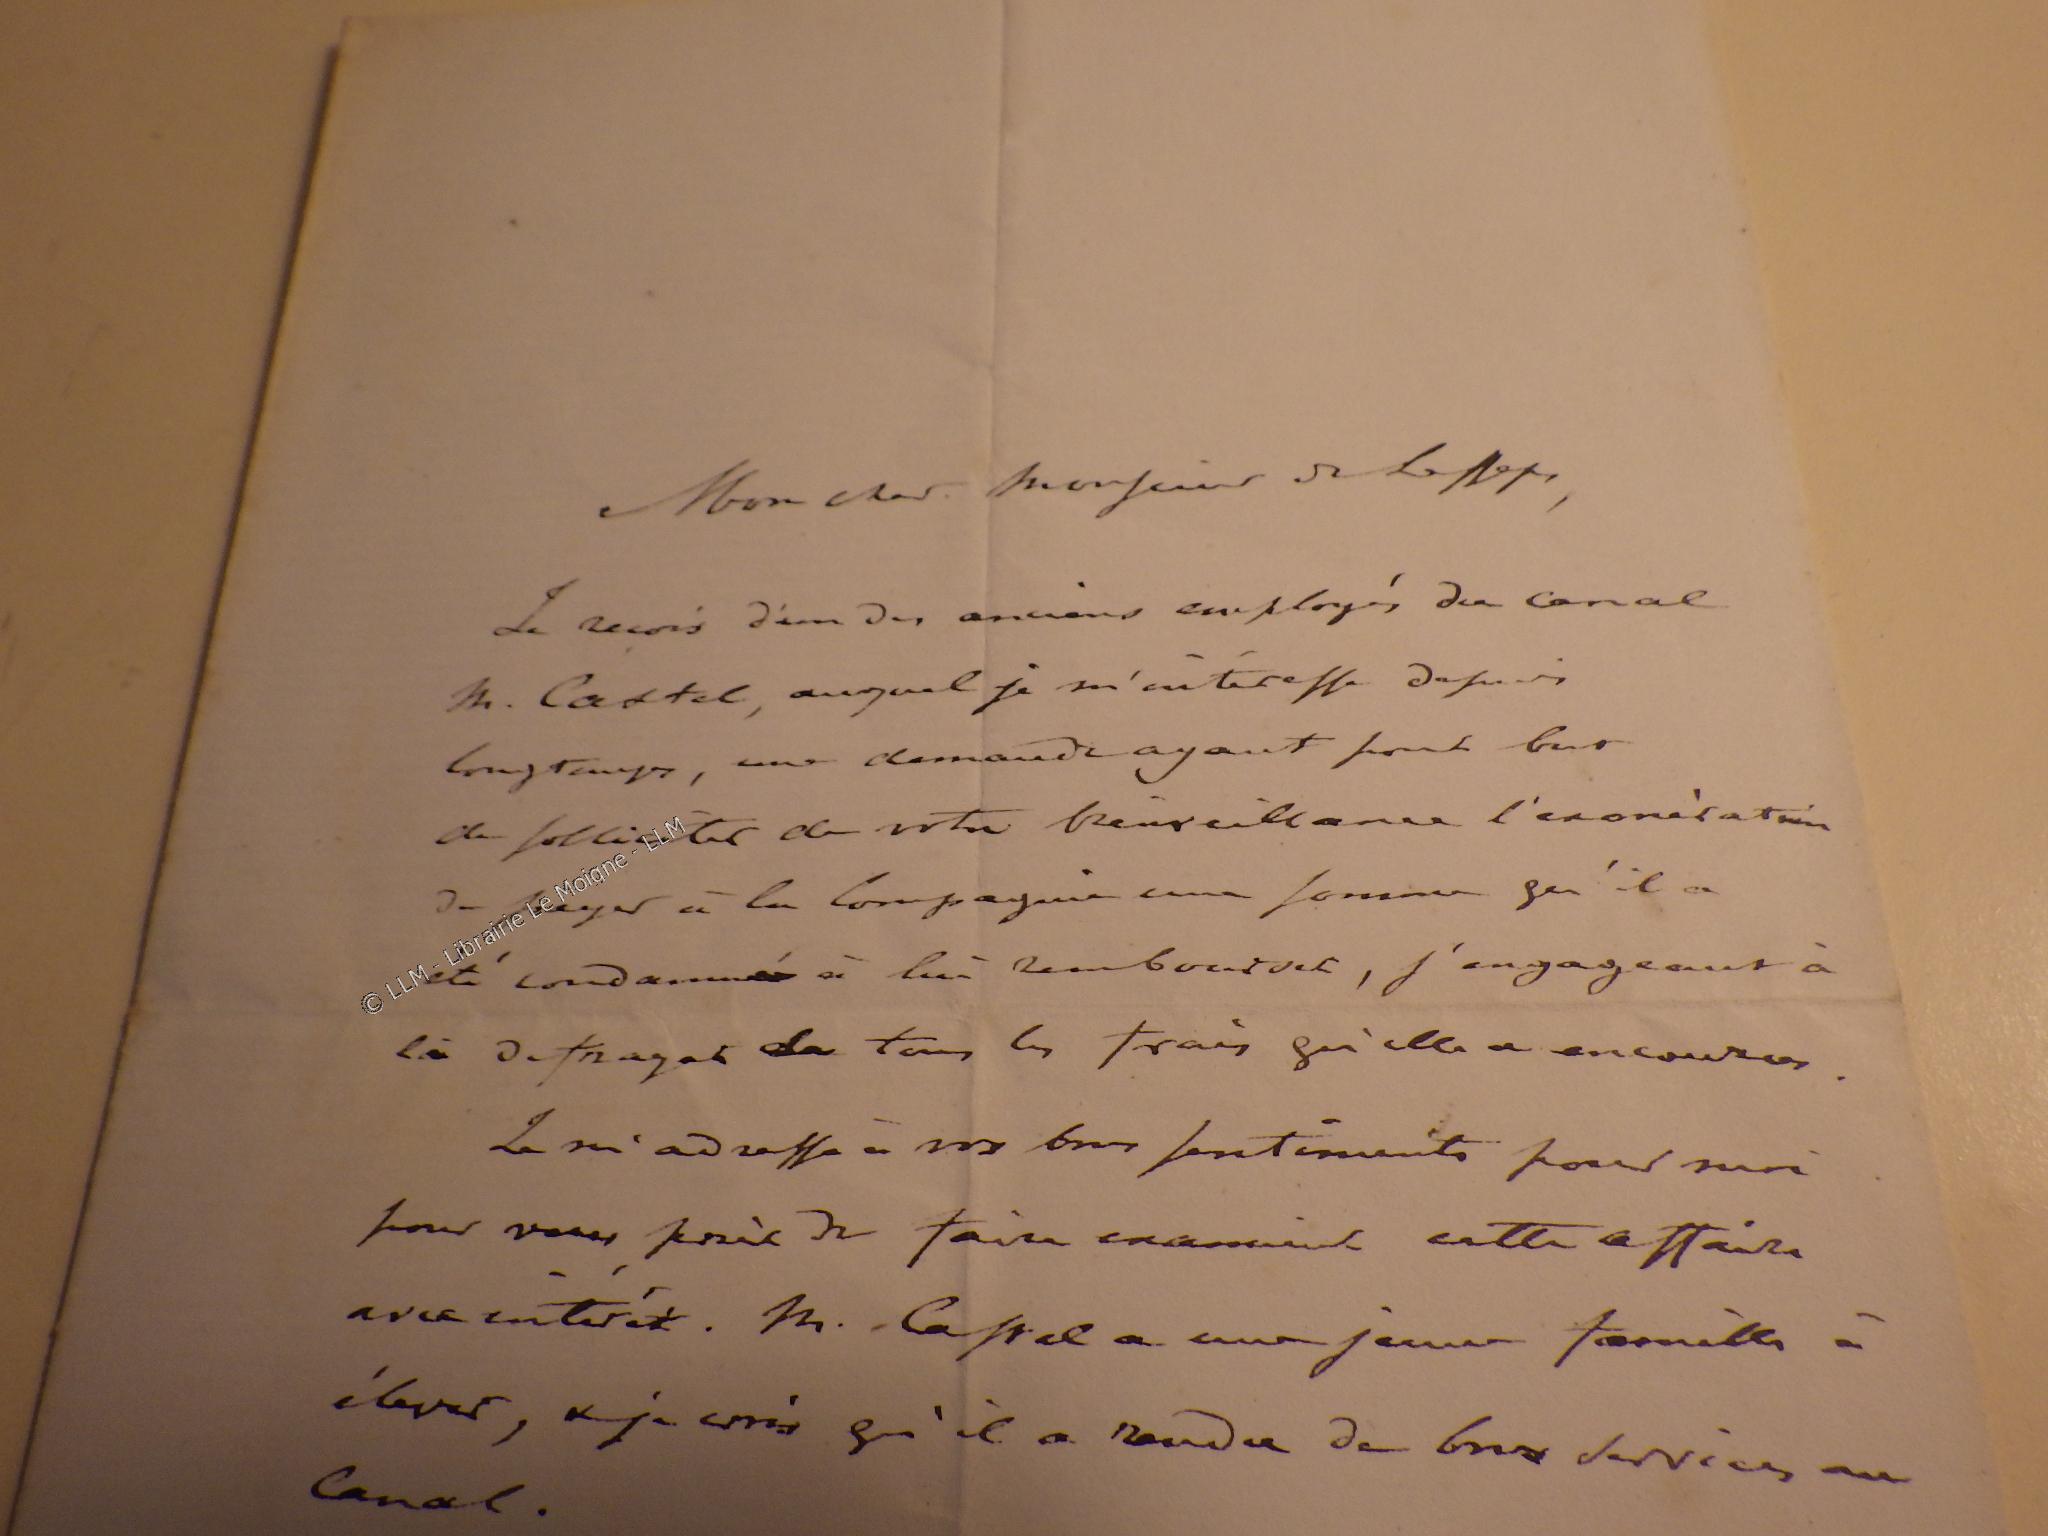 Mon cher Monsieur de Lesseps,
Je reçois d'un des anciens employés du canal
M. Castel, auquel je m'intéresse depuis
longtemps, une demande ayant pour but
de solliciter de votre bienveillance l'exonération
de payer à la Compagnie une somme qu'il a
été condamné à lui rembourser, s'engageant à
la defrayer de tous les frais qu'elle a encourus.
Je m'adresse à vos bons sentiments pour moi
pour vous prier de faire examiner cette affaire
avec intérêt. M. Castel a une jeune famille à
élever, et je crois qu'il a rendu de bons services au
Canal.
© LLM - Librairie Le Moigne - LLM